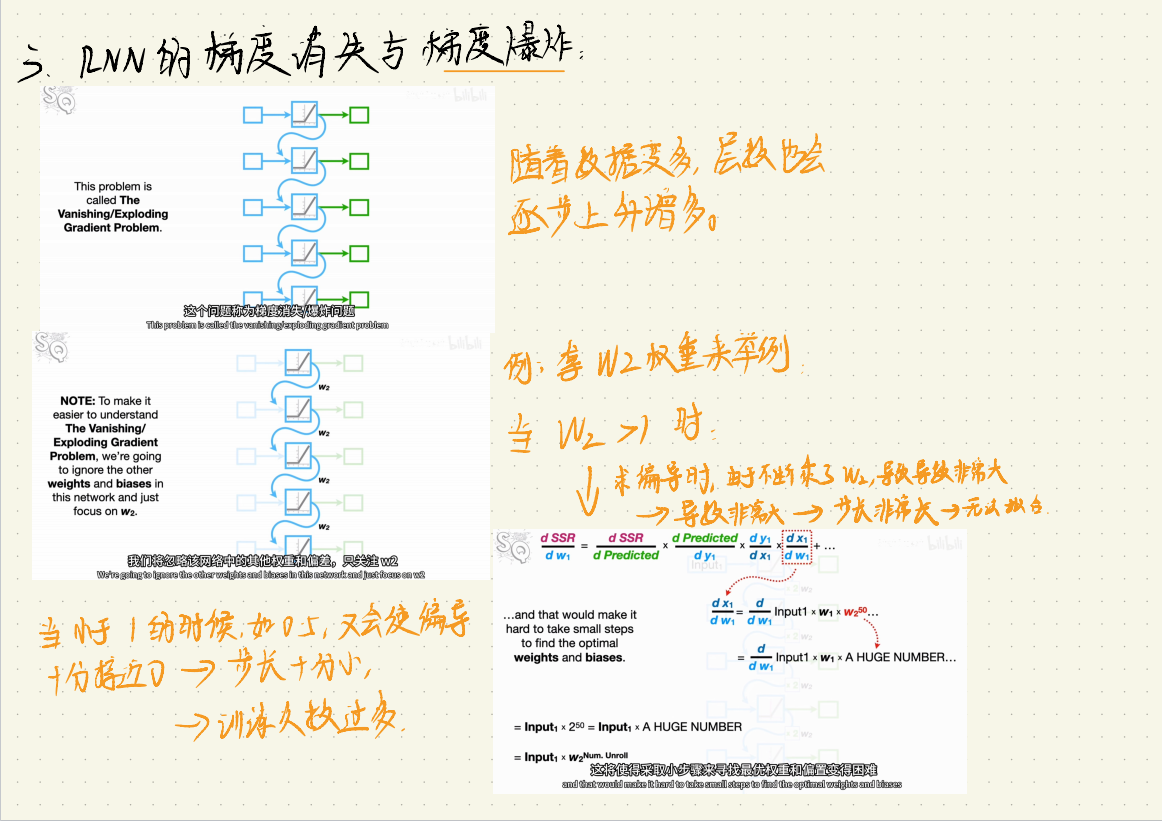 3. RNN的梯度消失与梯度爆炸:
SQ
bilibili
This problem is
called The
Vanishing/Exploding
Gradient Problem.
这个问题称为梯度消失/爆炸问题
This problem is called the vanishing/exploding gradient problem
随着数据变多,层数也会
逐步上升增多。
SQ
bilibili
NOTE: To make it
easier to understand
The Vanishing/
Exploding Gradient
Problem, we're going
to ignore the other
weights and biases in
this network and just
focus on w₂.
w₂
w₂
w₂
w₂
我们将忽略该网络中的其他权重和偏差，只关注 w2
We're going to ignore the other weights and biases in this network and just focus on w2
例:拿W2权重来举例
当 W2 >1 时:
求偏导时,由于不断乘了W2,导致导数非常大
→导数非常大→步长非常长→无法拟合.
SQ
bilibili
d SSR / d w₁ = d SSR / d Predicted × d Predicted / d y₁ × d y₁ / d x₁ × d x₁ / d w₁ + ...
Input1
...and that would make it
hard to take small steps
to find the optimal
weights and biases.
d x₁ / d w₁ = d / d w₁ Input1 × w₁ × w₂⁵⁰...
= d / d w₁ Input1 × w₁ × A HUGE NUMBER...
= Input₁ × 2⁵⁰ = Input₁ × A HUGE NUMBER
= Input₁ × w₂ᴺᵘᵐ· ᵁⁿʳᵒˡˡ
这将使得采取小步骤来寻找最优权重和偏置变得困难
and that would make it hard to take small steps to find the optimal weights and biases
当小于1的时候,如0.5,又会使偏导
十分接近0→步长十分小,
→训练次数过多.